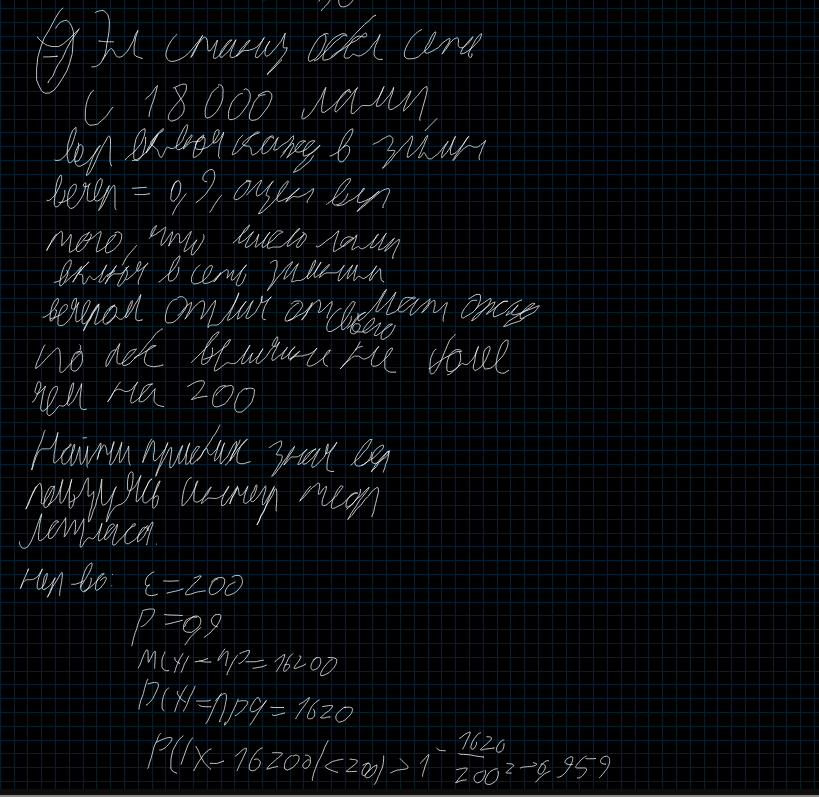 Эл станц обсл сеть
с 18000 ламп
вер включ кажд в зимн
вечер = 0,9, оцен вер
того, что число ламп
включ в сеть зимним
вечером отлич от своего мат ожид
по абс величине не более
чем на 200
Найти приближ знач вер
пользуясь интегр теор
Лапласа.
нер-во: ε=200
p=0,9
M(X)=np=16200
D(X)=npq=1620
P(|X-16200|<200)>1-1620/200²=0,959